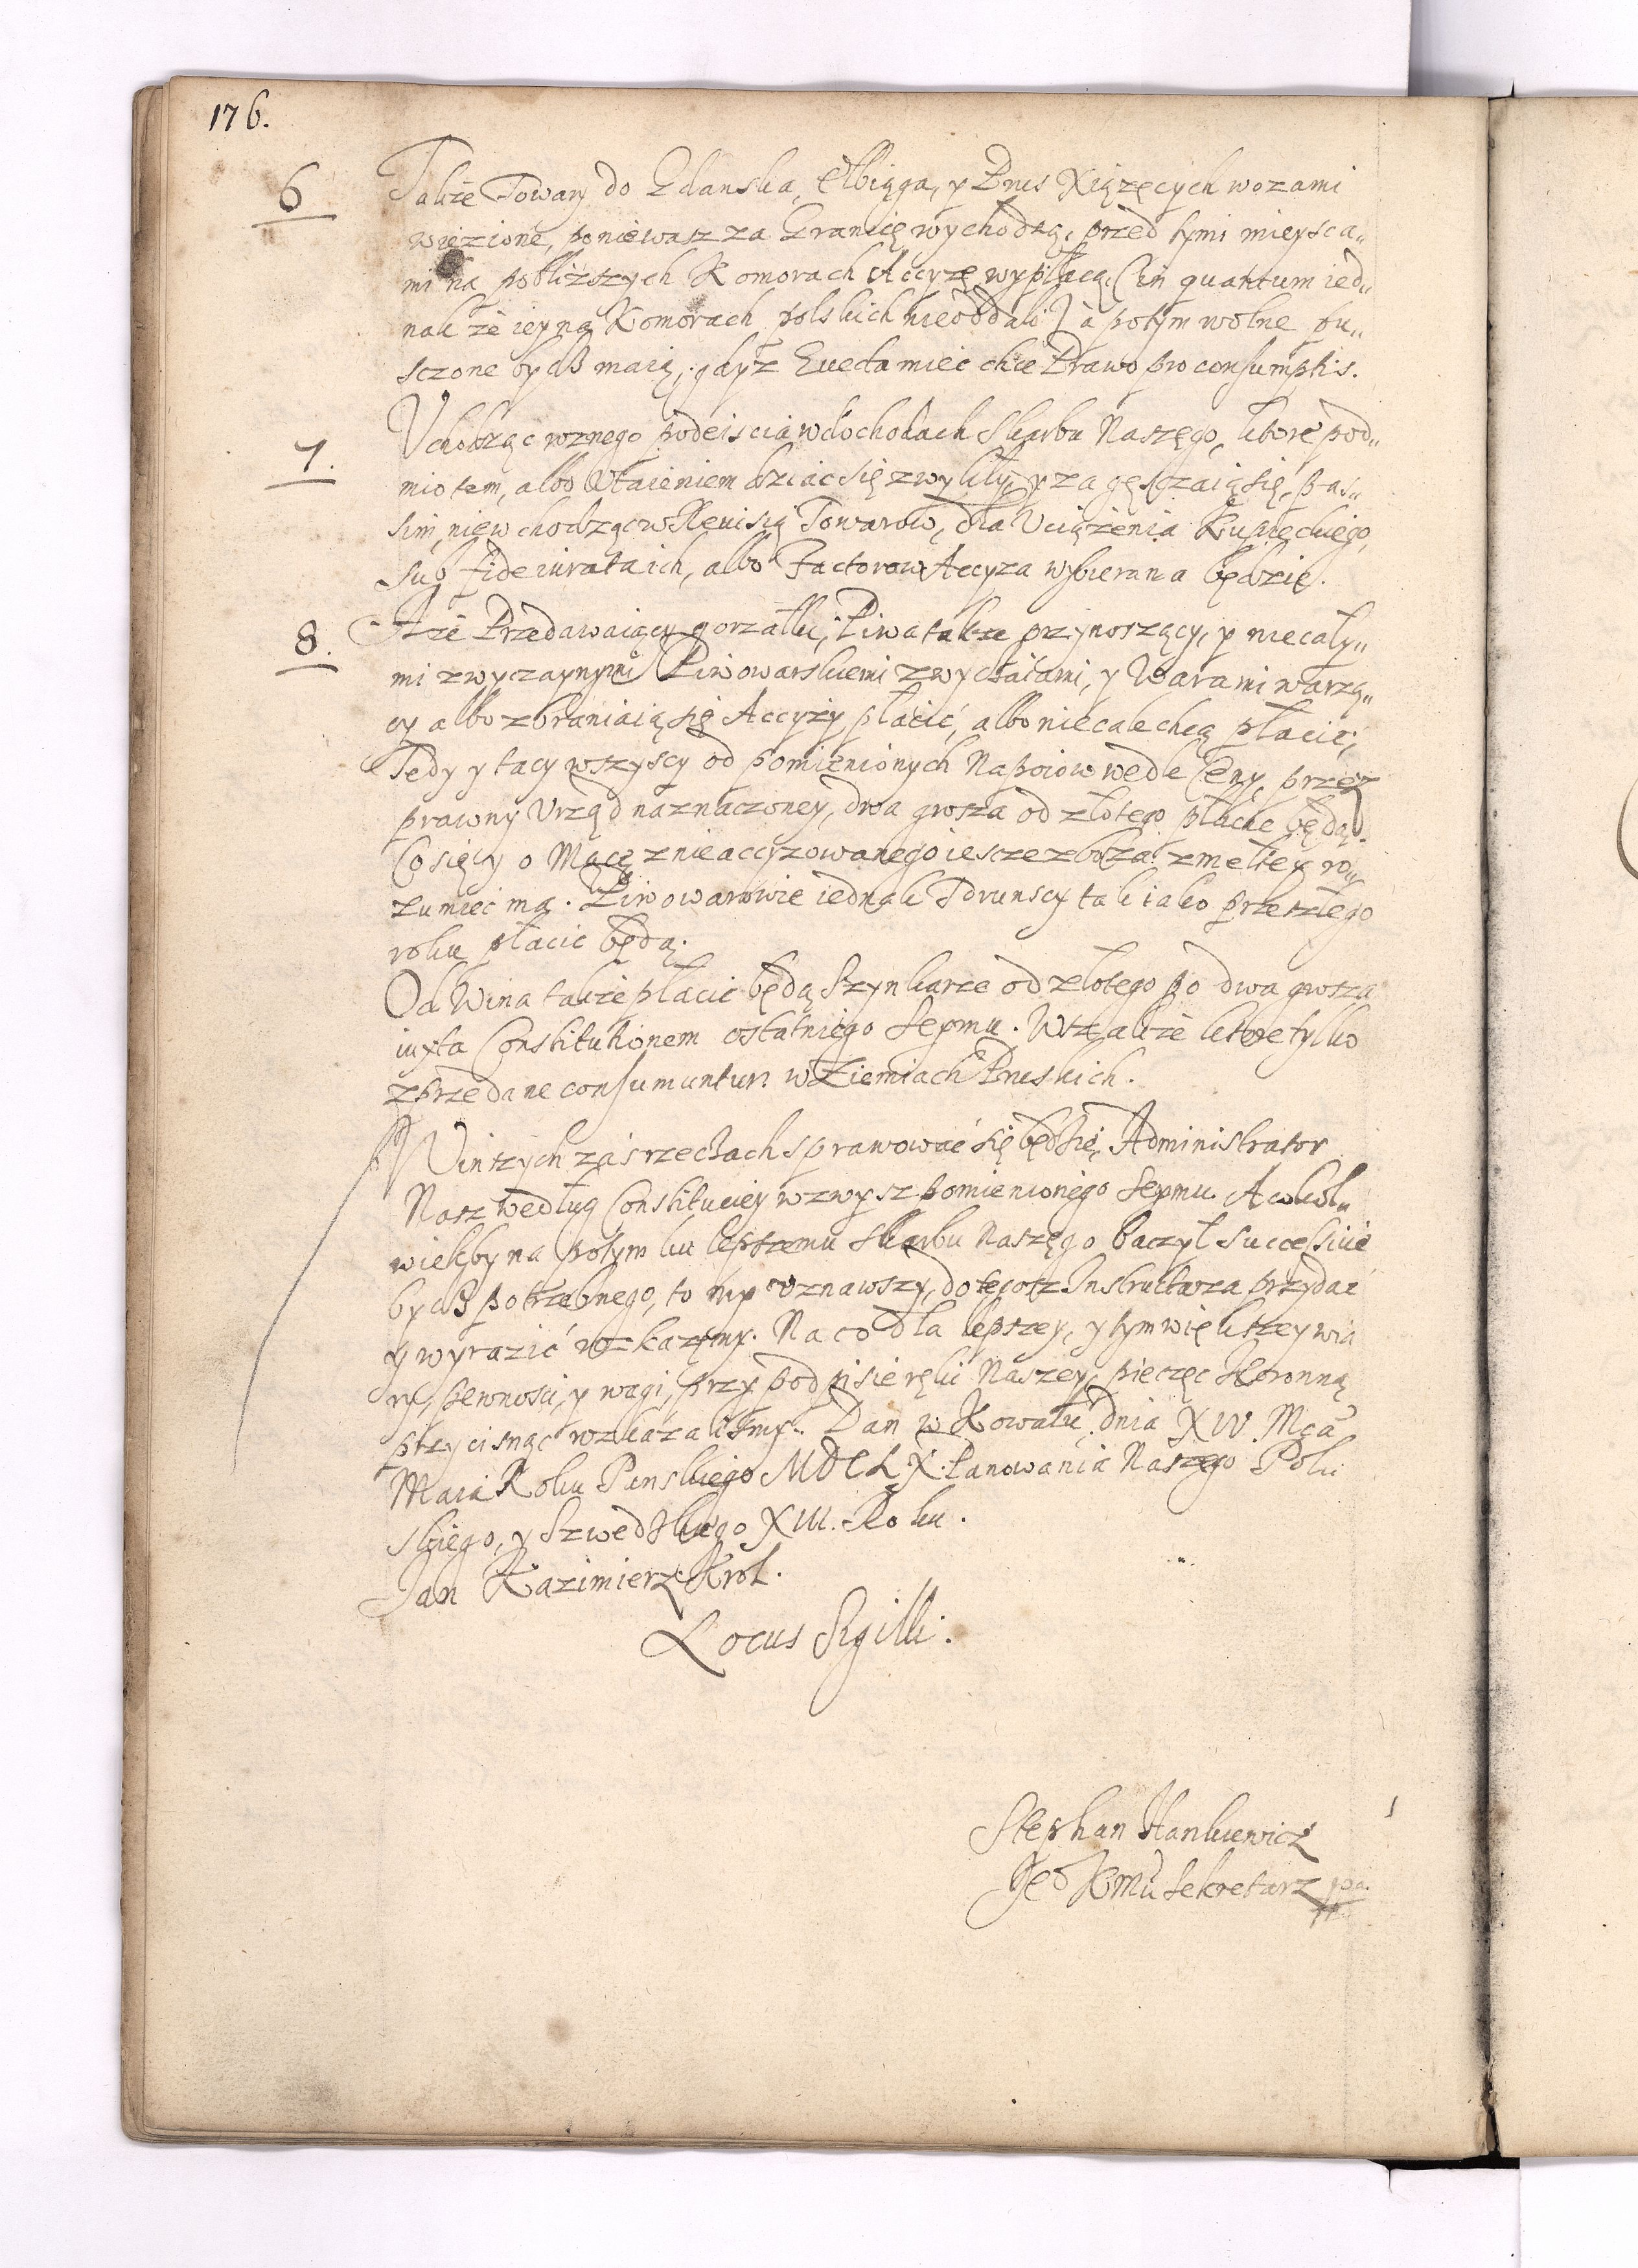 176.
6 Takze Towary do Gdanska, Elbiąga, y Prus Xiązęcych wozami
wiezione, poniewasz za Granicę wychodzą, przed tymi mieysca„
mi na poblizszych Komorach Accyzę wypłacą (in quantum ied„
nak ze iey na Komorach polskich nieoddali) a potym wolne pu„
sczone bydz maią, gdyz Evecta miec chce Prawo pro consumptis.
7. Vchodząc roznego podeiscia w dochodach Skarbu Naszego, ktore pod„
miotem, albo Vtaieniem dziac się zwykły, y zagęsczaią się, pas„
sim, niewchodząc w Rewisią Towarow, dla Vciązenia Kupieckiego,
sub fide iurata ich, albo Factorow Accyza wybierana będzie.
8. A ze Przedawaiący gorzałki, Piwa takze przynoszący, y niecały„
mi zwyczaynymi Piwowarskiemi zwyczaiami, y Warami warzą„
cy albo zbraniaią się Accyzy płacić, albo niecale chcą płacić,
Tedy y tacy wszyscy od pomienionych Napoiow wedle Ceny, przez
prawny Vrząd naznaczoney, dwa grosza od złotego płacic będą.
Co się y o Mące z nieaccyzowanego iescze zboza zmełtey ro„
zumiec ma. Piwowarowie iednak Torunscy tak iako przeszłego
roku płacic będą.
Od Wina takze płacic będą Szynkarze od złotego po dwa grosza
iuxta Constitutionem ostatniego Seymu. Wszakze ktore tylko
zprzedane consumuntur w Ziemiach Pruskich.
W inszych zas rzeczach sprawowac się będzie Administrator
Nasz według Constituciey wzwysz pomienionego Seymu. A cokol„
wiekby na potym ku lepszemu Skarbu Naszego baczył successive
bydz potrzebnego, to my vznawszy, do tegosz Instruktarza przydac
y wyrazić rozkazemy. Na co dla lepszey, y tym większey wia
ry, pewnosci, y wagi, przy podpisie ręki Naszey, pieczęc Koronną
przycisnąc rozkazalismy. Dan w Kowalu, dnia XIV. Mca
Maia Roku Panskiego MDCLX. Panowania Naszego Pol„
skiego, y Szwedzkiego XIII. Roku.
Jan Kazimierz Krol.
Locus Sigilli.
Stephan Hankiewicz
Jeo Kmci Sekretarz